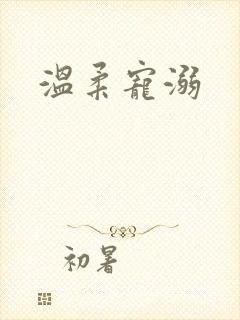 温柔寵溺
初暑